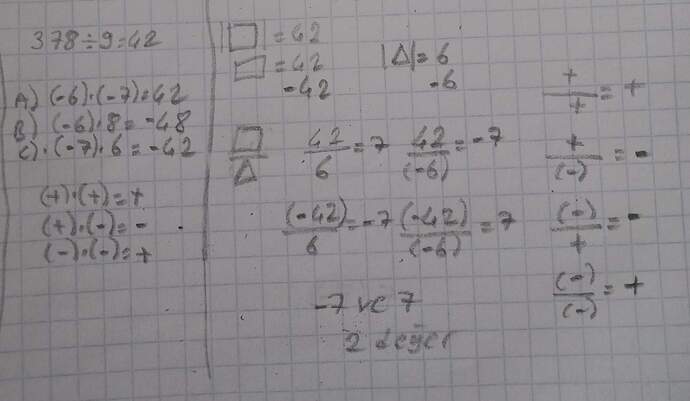 378÷9=42
A) (-6)·(-7)=42
B) (-6)·8=-48
C)·(-7)·6=-42
(+)·(+)=+
(+)·(-)=-
(-)·(-)=+
|□|=42
□=42
-42
|Δ|=6
-6
□/Δ 42/6=7 42/(-6)=-7
(-42)/6=-7 (-42)/(-6)=7
-7 ve 7
2 değer
+/+=+
+/(-)=-
(-)/+=-
(-)/(-)=+